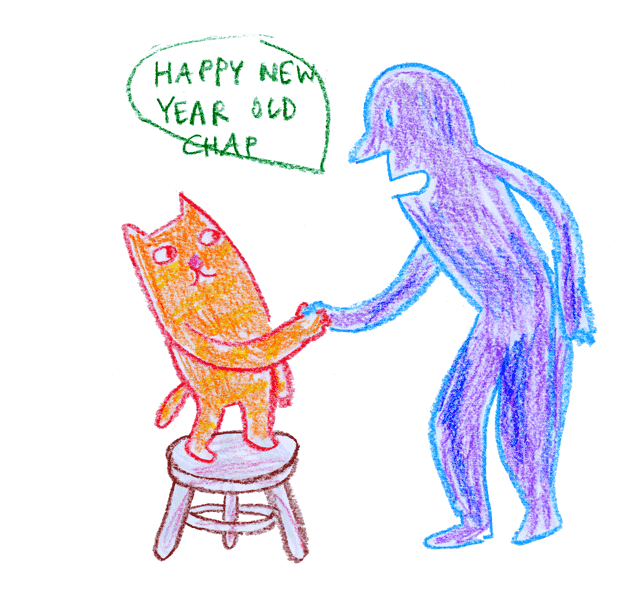 HAPPY NEW
YEAR OLD
CHAP